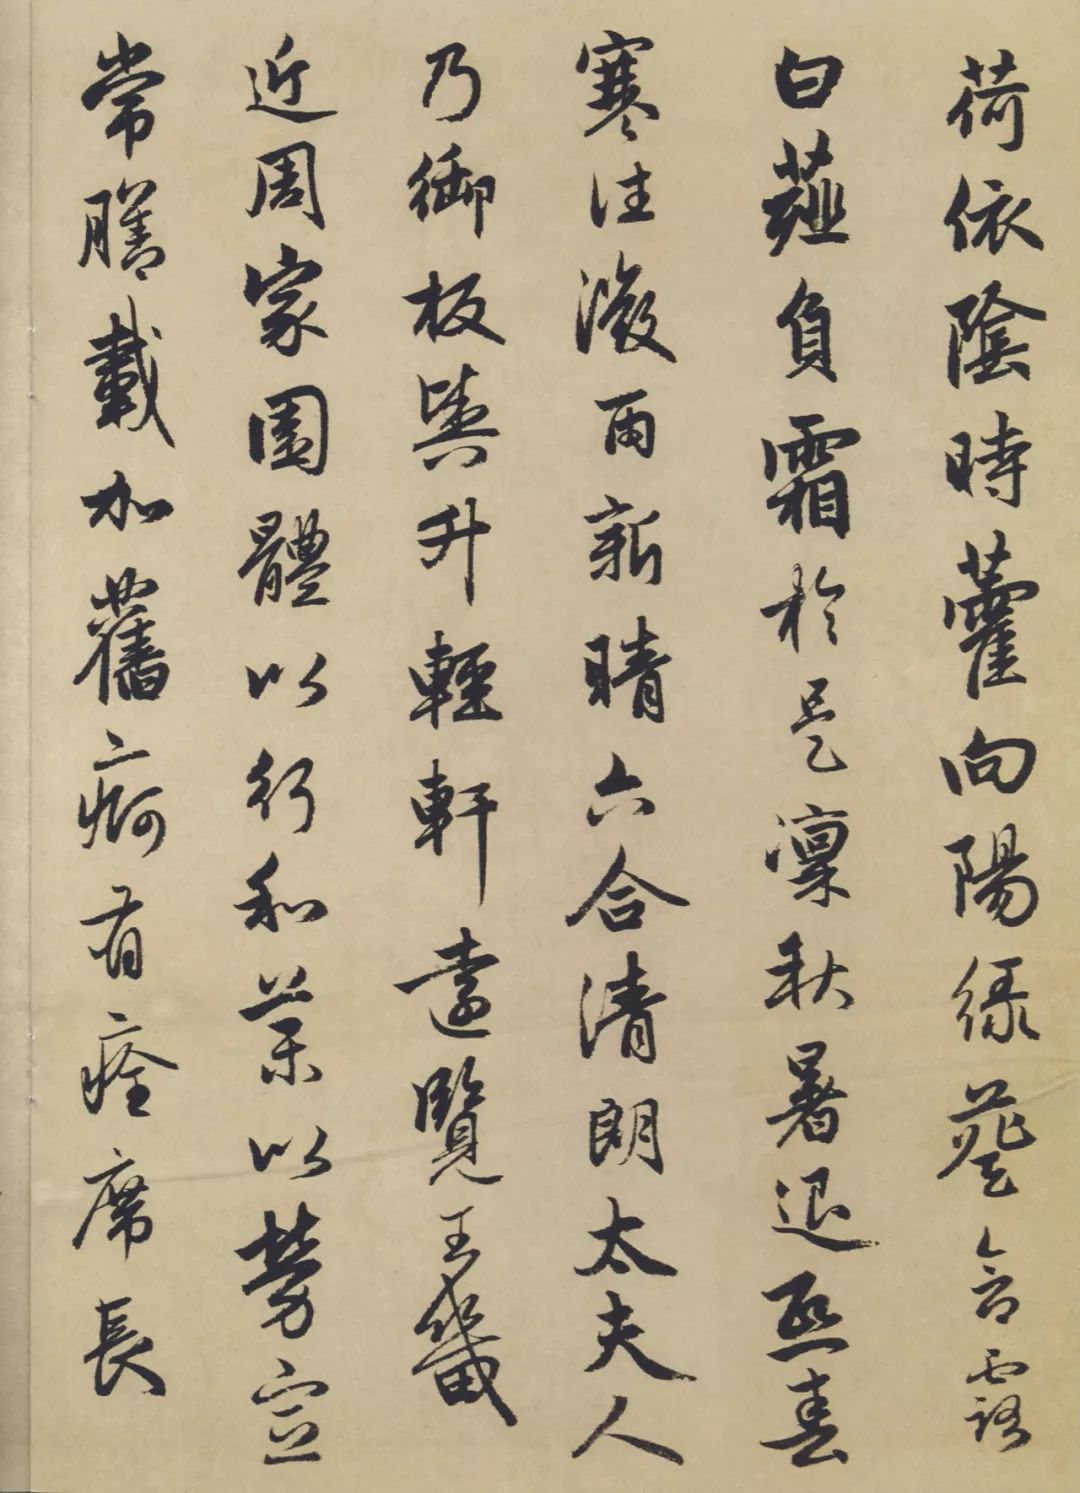 荷依陰時藿向陽緑葵含露
白薤負霜於是凜秋暑退熙春
寒往微雨新晴六合清朗太夫人
乃御板輿升輕軒遠覽王畿
近周家園體以行和藥以勞宣
常膳載加舊痾有痊席長